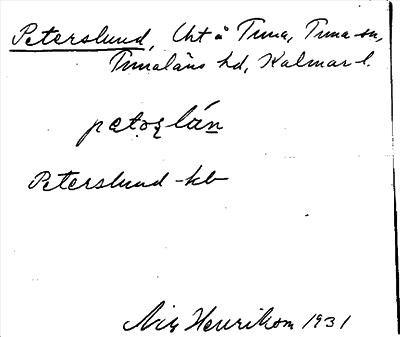 Peterslund, Uht å Tuna, Tuna sn,
Tunaläns hd, Kalmar l.
Peterslund -kb
Henrikson 1931